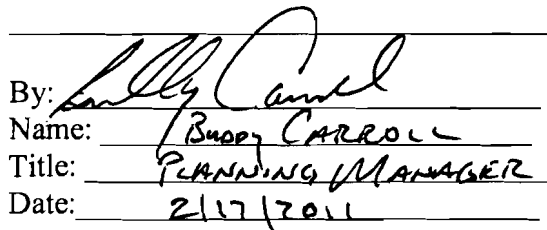 By: Buddy Carroll
Name: Buddy CARROLL
Title: PLANNING MANAGER
Date: 2/17/2011